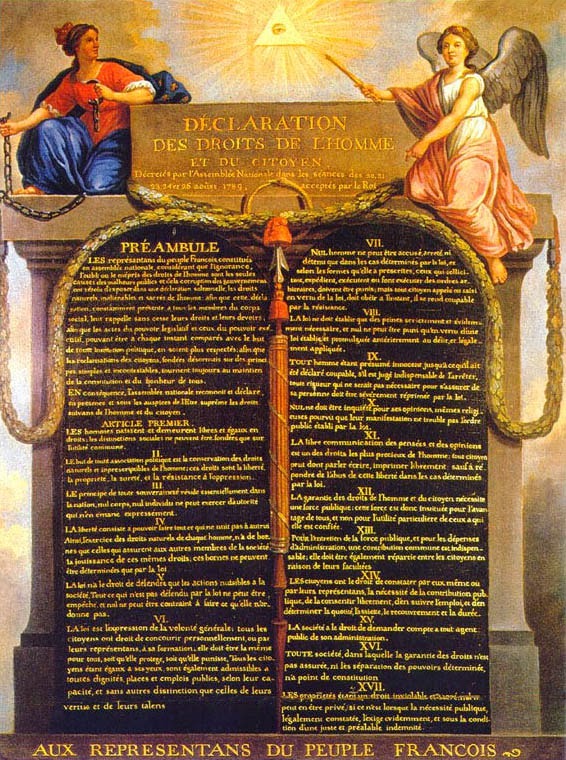 DÉCLARATION
DES DROITS DE L'HOMME
ET DU CITOYEN,
Décretés par l'Assemblée Nationale dans les séances des 20, 21
23, 24 et 26 août 1789, acceptés par le Roi
PRÉAMBULE
LES représentans du peuple François, constitués
en assemblée nationale, considérant que l'ignorance,
l'oubli ou le mépris des droits de l'homme sont les seules
causes des malheurs publics et de la corruption des gouvernemens
ont résolu d'exposer dans une déclaration solemnelle, les droits
naturels, inaliénables et sacrés de l'homme; afin que cette décla-
ration, constamment présente à tous les membres du corps
social, leur rappelle sans cesse leurs droits et leurs devoirs;
afin que les actes du pouvoir législatif et ceux du pouvoir exé-
cutif, pouvant être à chaque instant comparés avec le but
de toute institution politique, en soient plus respectés; afin que
les réclamations des citoyens, fondées désormais sur des princi-
pes simples et incontestables, tournent toujours au maintien
de la constitution et du bonheur de tous.
EN conséquence, l'assemblée nationale reconnoit et déclare,
en présence et sous les auspices de l'Etre suprême les droits
suivans de l'homme et du citoyen.
ARTICLE PREMIER.
LES hommes naissent et demeurent libres et égaux en
droits; les distinctions sociales ne peuvent être fondées que sur
l'utilité commune.
II.
LE but de toute association politique est la conservation des droits
naturels et imprescriptibles de l'homme; ces droits sont la liberté,
la propriété, la sureté, et la résistance à l'oppression.
III.
LE principe de toute souveraineté réside essentiellement dans
la nation, nul corps, nul individu ne peut exercer d'autorité
qui n'en émane expressement.
IV.
LA liberté consiste à pouvoir faire tout ce qui ne nuit pas à autrui
Ainsi, l'exercice des droits naturels de chaque homme, n'a de bor-
nes que celles qui assurent aux autres membres de la société
la jouissance de ces mêmes droits; ces bornes ne peuvent
être déterminées que par la loi
V.
LA loi n'a le droit de défendre que les actions nuisibles à la
société. Tout ce qui n'est pas défendu par la loi ne peut être
empêché, et nul ne peut être contraint à faire ce qu'elle n'or-
donne pas.
VI.
LA loi est l'expression de la volonté générale; tous les
citoyens ont droit de concourir personnellement, ou par
leurs représentans, à sa formation; elle doit être la même
pour tous, soit qu'elle protege, soit qu'elle punisse. Tous les cito-
yens étant égaux à ses yeux, sont également admissibles à
toutes dignités, places et emplois publics, selon leur ca-
pacité, et sans autres distinction que celles de leurs
vertus et de leurs talens
VII.
NUL homme ne peut être accusé, arreté, ni
détenu que dans les cas déterminés par la loi, et
selon les formes qu'elle a prescrites, ceux qui sollici-
tent, expédient, exécutent ou font exécuter des ordres ar-
bitraires, doivent être punis; mais tout citoyen appelé ou saisi
en vertu de la loi, doit obéir à l'instant, il se rend coupable
par la résistance.
VIII.
LA loi ne doit établir que des peines strictement et évidem-
ment nécessaire, et nul ne peut être puni qu'en vertu d'une
loi établie et promulguée antérierement au délit, et légale-
ment appliquée.
IX.
TOUT homme étant présumé innocent jusqu'à ce qu'il ait
été déclaré coupable, s'il est jugé indispensable de l'arrêter,
toute rigueur qui ne serait pas nécessaire pour s'assurer de
sa personne doit être sévèrement réprimée par la loi.
X.
NUL ne doit être inquiété pour ses opinions, mêmes religi-
euses pourvu que leur manifestation ne trouble pas l'ordre
public établi par la loi.
XI.
LA libre communication des pensées et des opinions
est un des droits les plus precieux de l'homme; tout citoyen
peut donc parler, écrire, imprimer librement, sauf à ré-
pondre de l'abus de cette liberté dans les cas déterminés
par la loi.
XII.
LA garantie des droits de l'homme et du citoyen nécessite
une force publique; cette force est donc instituée pour l'avan-
tage de tous, et non pour l'utilité particuliere de ceux a qui
elle est confiée.
XIII.
Pour l'entretien de la force publique, et pour les dépenses
d'administration, une contribution commune est indispen-
sable; elle doit être également répartie entre les citoyens en
raison de leurs facultées
XIV.
LES citoyens ont le droit de constater par eux même ou
par leurs représentans, la nécessité de la contribution pub-
lique, de la consentir librement, d'en suivre l'emploi, et d'en
déterminer la quotité, l'assiette, le recouvrement et la durée.
XV.
LA société a le droit de demander compte à tout agent
public de son administration.
XVI.
TOUTE société, dans laquelle la garantie des droits n'est
pas assurée, ni les séparation des pouvoirs déterminée,
n'a point de constitution
XVII.
LES propriétés étant un droit inviolable et sacré, nul ne
peut en être privé, si ce n'est lorsque la nécessité publique,
légalement constatée, l'exige evidemment, et sous la condi-
tion d'une juste et préalable indemnité.
AUX REPRESENTANS DU PEUPLE FRANCOIS